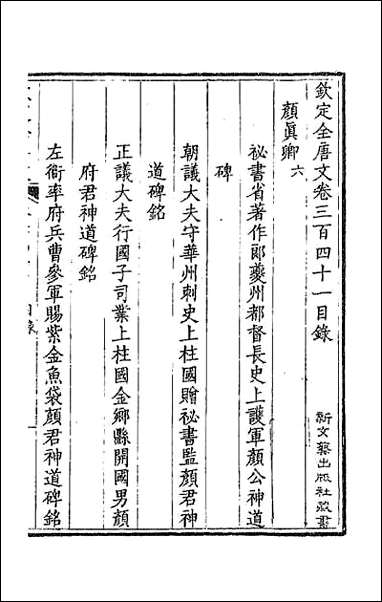 欽定全唐文卷三百四十一目錄
新文藝出版社藏書
顏眞卿 六
祕書省著作郎夔州都督長史上護軍顏公神道
碑
朝議大夫守華州刺史上柱國贈祕書監顏君神
道碑銘
正議大夫行國子司業上柱國金鄉縣開國男顏
府君神道碑銘
左衞率府兵曹參軍賜紫金魚袋顏君神道碑銘